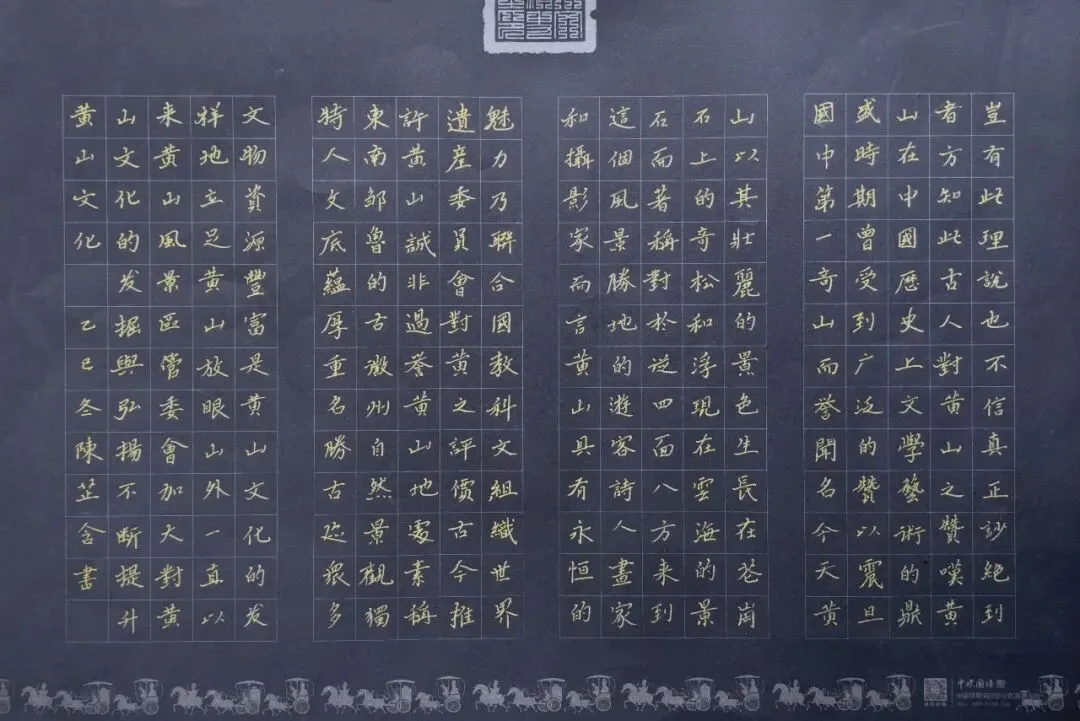 豈有此理說也不信真正妙絕到
者方知此古人對黃山之贊嘆黃
山在中國歷史上文學藝術的鼎
盛時期曾受到广泛的贊以震旦
國中第一奇山而譽聞名今天黃
山以其壯麗的景色生長在花崗
石上的奇松和浮現在雲海的景
石而著稱對於從四面八方来到
這個風景勝地的遊客詩人畫家
和攝影家而言黃山具有永恒的
魅力乃聯合國教科文組織世界
遺產委員會對黃之評價古今推
許黃山誠非過誉黃山地處素稱
東南邹魯的古徽州自然景觀獨
特人文底蘊厚重名勝古迹眾多
文物資源豐富是黃山文化的发
祥地立足黃山放眼山外一直以
来黃山風景區管委會加大對黃
山文化的发掘與弘揚不断提升
黃山文化 乙巳冬陳芷含書